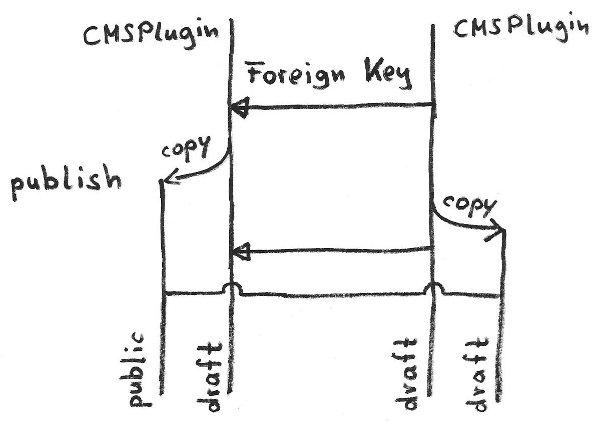 CMSPlugin
CMSPlugin
Foreign Key
copy
publish
copy
public
draft
draft
draft